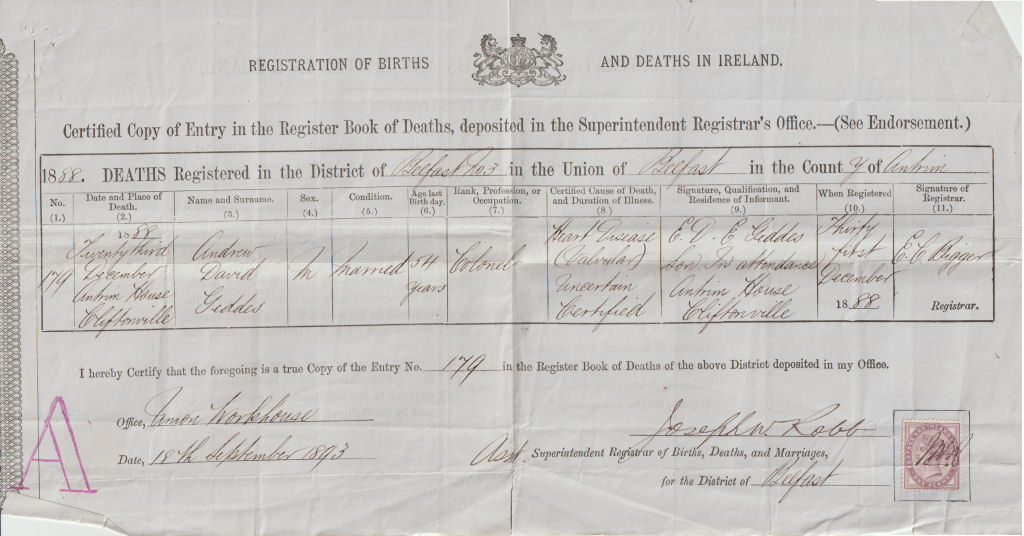 REGISTRATION OF BIRTHS AND DEATHS IN IRELAND.
Certified Copy of Entry in the Register Book of Deaths, deposited in the Superintendent Registrar's Office.—(See Endorsement.)
1888. DEATHS Registered in the District of Belfast No 3 in the Union of Belfast in the County of Antrim
No. (1.)
Date and Place of Death. (2.)
Name and Surname. (3.)
Sex. (4.)
Condition. (5.)
Age last Birthday. (6.)
Rank, Profession, or Occupation. (7.)
Certified Cause of Death, and Duration of Illness. (8.)
Signature, Qualification, and Residence of Informant. (9.)
When Registered (10.)
Signature of Registrar. (11.)
179
1888
Twenty third
December
Antrim House
Cliftonville
Andrew
David
Geddes
M
Married
54
years
Colonel
Heart Disease
(Valvular)
Uncertain
Certified
E. D. E. Geddes
Son. In attendance
Antrim House
Cliftonville
Thirty
first
December
1888
E. C. Bigger
Registrar.
I hereby Certify that the foregoing is a true Copy of the Entry No. 179 in the Register Book of Deaths of the above District deposited in my Office.
Office, Union Workhouse
Joseph W Robb
Date, 18th September 1893
Asst. Superintendent Registrar of Births, Deaths, and Marriages,
for the District of Belfast
A